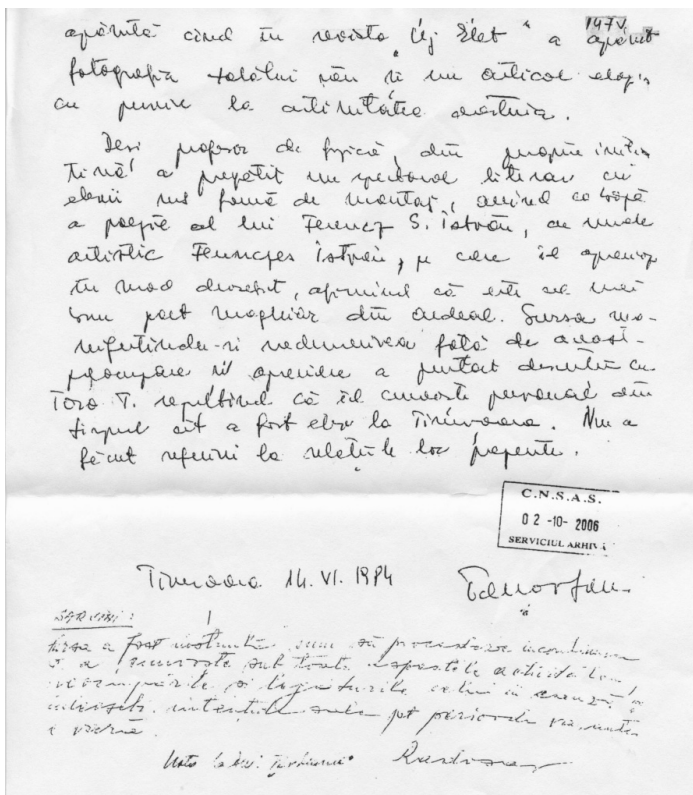 147V.
apărută cînd în revista "Új Élet" a apărut
fotografia tatălui său și un articol elogi-
cu privire la activitatea acestuia.
Deși profesor de fizică, din proprie iniția-
tivă a pregătit un spectacol literar cu
elevii sub formă de montaj, avînd ca bază
a poezie al lui Ferencz S. István, cu nume
artistic Ferenczes István, pe care îl apreciaz
în mod deosebit, afirmînd că este cel mai
bun poet maghiar din Ardeal. Sursa ma-
nifestîndu-și nedumerirea față de aceast-
preocupare și apreciere a purtat discuții cu
Toró T. replicînd că îl cunoaște personal din
timpul cît a fost elev la Timișoara. Nu a
făcut referiri la relațiile lor prezente.
C.N.S.A.S.
02-10-2006
SERVICIUL ARHIVĂ
Timișoara 14. VI. 1984
SARCINI:
Sursa a fost instruită cum să procedeze în continuare
a cunoaște sub toate aspectele activitatea
preocupările și legăturile celui în cauză,
intențiile sale pt perioada
Nota